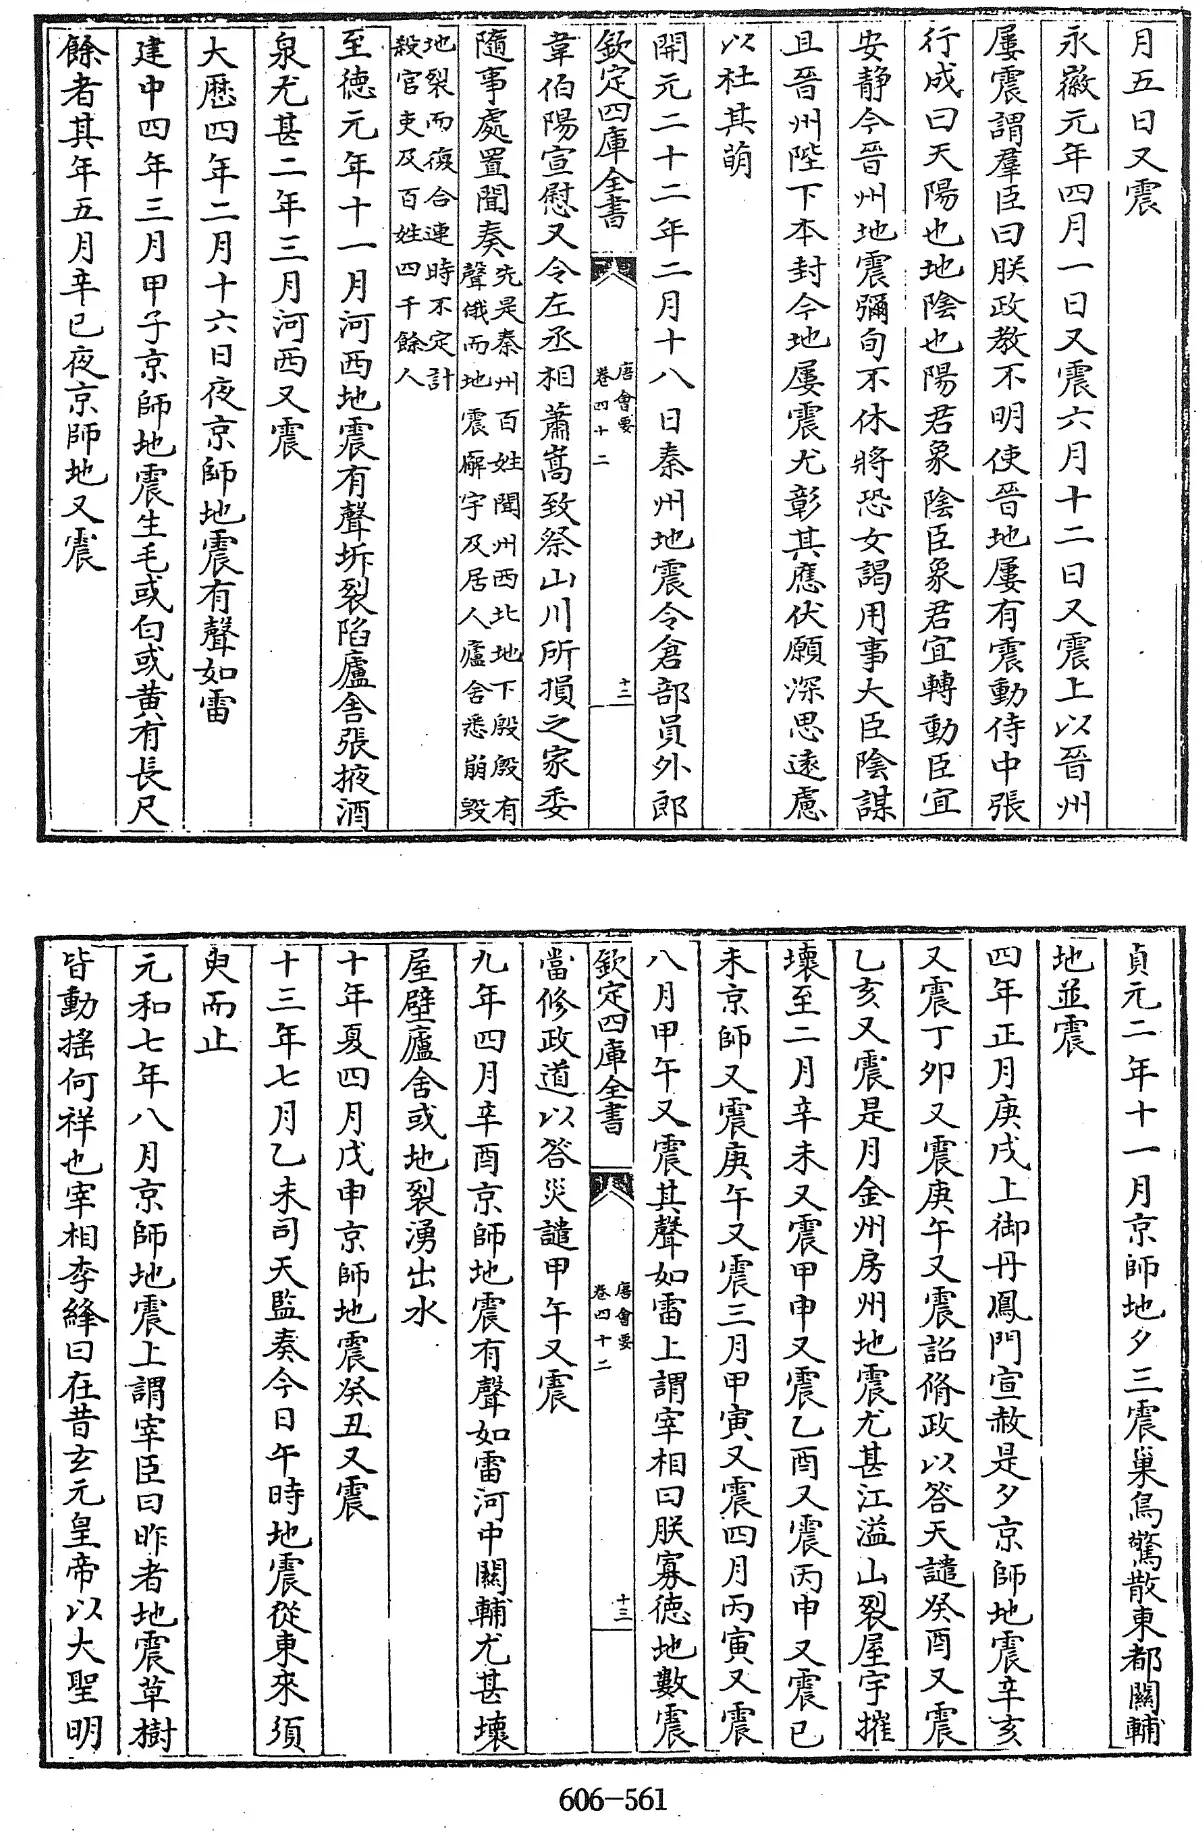 月五日又震
永徽元年四月一日又震六月十二日又震上以晉州
屢震謂羣臣曰朕政教不明使晉地屢有震動侍中張
行成曰天陽也地陰也陽君象陰臣象君宜轉動臣宜
安静今晉州地震彌旬不休將恐女謁用事大臣陰謀
且晉州陛下本封今地屢震尤彰其應伏願深思遠慮
以杜其萌
開元二十二年二月十八日秦州地震令倉部員外郎
欽定四庫全書
唐會要
卷四十二
十三
韋伯陽宣慰又令左丞相蕭嵩致祭山川所損之家委
隨事處置聞奏
先是秦州百姓聞州西北地下殷殷有
聲俄而地震廨宇及居人廬舍悉崩毀
地裂而復合連時不定計
殺官吏及百姓四千餘人
至德元年十一月河西地震有聲坼裂陷廬舍張掖酒
泉尤甚二年三月河西又震
大厯四年二月十六日夜京師地震有聲如雷
建中四年三月甲子京師地震生毛或白或黄有長尺
餘者其年五月辛巳夜京師地又震
貞元二年十一月京師地夕三震巢鳥驚散東都關輔
地並震
四年正月庚戌上御丹鳳門宣赦是夕京師地震辛亥
又震丁卯又震庚午又震詔脩政以答天譴癸酉又震
乙亥又震是月金州房州地震尤甚江溢山裂屋宇摧
壞至二月辛未又震甲申又震乙酉又震丙申又震已
未京師又震庚午又震三月甲寅又震四月丙寅又震
八月甲午又震其聲如雷上謂宰相曰朕寡德地數震
欽定四庫全書
唐會要
卷四十二
十三
當修政道以答災譴甲午又震
九年四月辛酉京師地震有聲如雷河中關輔尤甚壞
屋壁廬舍或地裂湧出水
十年夏四月戊申京師地震癸丑又震
十三年七月乙未司天監奏今日午時地震從東來須
臾而止
元和七年八月京師地震上謂宰臣曰昨者地震草樹
皆動搖何祥也宰相李絳曰在昔玄元皇帝以大聖明
606-561